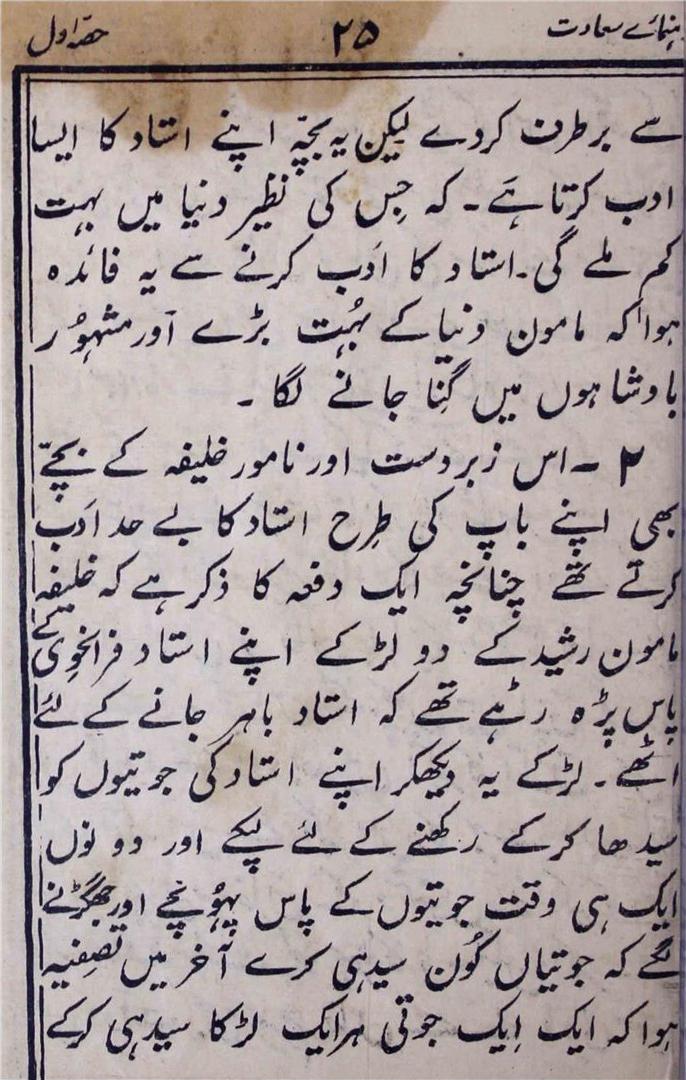 رہنمائے سعادت ۲۵ حصہ اول
سے برطرف کردے لیکن یہ بچّہ اپنے استاد کا ایسا
ادب کرتا ہَے۔ کہ جِس کی نظیر دنیا میں بہت
کم ملے گی۔ استاد کا اَدب کرنے سے یہ فائدہ
ہوا کہ مامون دنیا کے بہُت بڑے اَور مشہوُر
بادشاہوں میں گِنا جانے لگا۔
۲ ۔ اس زبردست اور نامور خلیفہ کے بچّے
بھی اپنے باپ کی طرح استاد کا بے حد اَدب
کرتے تھے چنانچہ ایک دفعہ کا ذکر ہے کہ خلیفہ
مامون رشید کے دو لڑکے اپنے استاد فرانحوِی کے
پاس پڑہ رہے تھے کہ استاد باہر جانے کے لئے
اٹھے۔ لڑکے یہ دیکھکر اپنے استاد کی جوتیوں کو
سیدھا کرکے رکھنے کے لئے لپکے اور دونوں
ایک ہی وقت جوتیوں کے پاس پہوُنچے اور جھگڑنے
لگے کہ جوتیاں کَون سیدہی کرے آخر میں تصفیہ
ہوا کہ ایک اِیک جوتی ہرایک لڑکا سیدہی کرکے